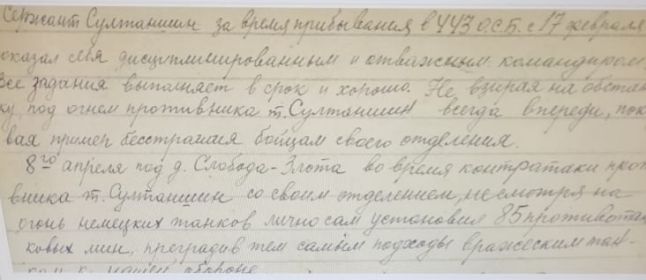 Сержант Султаншин за время прибывания в 443 О.С.Б. с 17 февраля
оказал себя дисциплинированным и отважным командиром
Все задания выполняет в срок и хорошо. Не взирая на обстан
ку, под огнем противника т. Султаншин всегда впереди, пок
вая пример бесстрашия бойцам своего отделения.
8го апреля под д. Слобода-Злота во время контратаки прот
вника т. Султаншин со своим отделением, несмотря на
огонь немецких танков лично сам установил 85 противотан
ковых мин, преградив тем самым подходы вражеским тан-
кам к нашей обороне